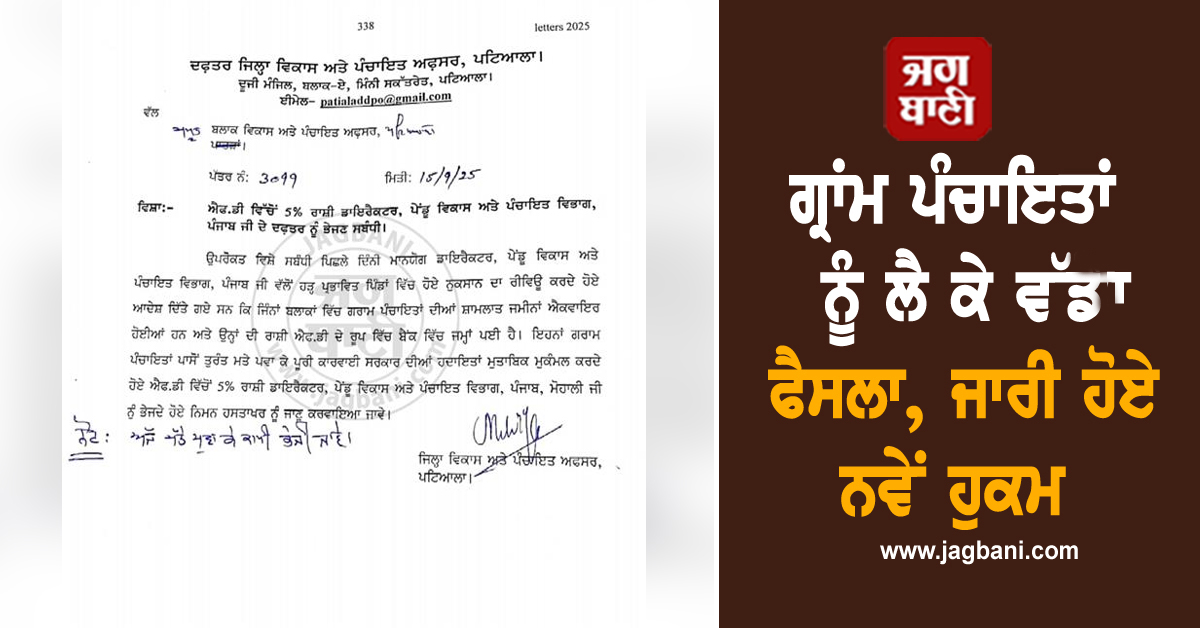 338
letters 2025
ਦਫ਼ਤਰ ਜਿਲ੍ਹਾ ਵਿਕਾਸ ਅਤੇ ਪੰਚਾਇਤ ਅਫ਼ਸਰ, ਪਟਿਆਲਾ।
ਦੂਜੀ ਮੰਜਿਲ, ਬਲਾਕ-ਏ, ਮਿੰਨੀ ਸਕੱਤਰੇਤ, ਪਟਿਆਲਾ।
ਈਮੇਲ- patialaddpo@gmail.com
ਵੱਲ
ਬਲਾਕ ਵਿਕਾਸ ਅਤੇ ਪੰਚਾਇਤ ਅਫ਼ਸਰ,
ਪੱਤਰ ਨੰ: 3099 ਮਿਤੀ: 15/9/25
ਵਿਸ਼ਾ:- ਐਫ.ਡੀ ਵਿੱਚੋਂ 5% ਰਾਸ਼ੀ ਡਾਇਰੈਕਟਰ, ਪੇਂਡੂ ਵਿਕਾਸ ਅਤੇ ਪੰਚਾਇਤ ਵਿਭਾਗ,
ਪੰਜਾਬ ਜੀ ਦੇ ਦਫ਼ਤਰ ਨੂੰ ਭੇਜਣ ਸਬੰਧੀ।
ਉਪਰੋਕਤ ਵਿਸ਼ੇ ਸਬੰਧੀ ਪਿਛਲੇ ਦਿੰਨੀ ਮਾਨਯੋਗ ਡਾਇਰੈਕਟਰ, ਪੇਂਡੂ ਵਿਕਾਸ ਅਤੇ
ਪੰਚਾਇਤ ਵਿਭਾਗ, ਪੰਜਾਬ ਜੀ ਵੱਲੋਂ ਹੜ੍ਹ ਪ੍ਰਭਾਵਿਤ ਪਿੰਡਾਂ ਵਿੱਚ ਹੋਏ ਨੁਕਸਾਨ ਦਾ ਰੀਵਿਊ ਕਰਦੇ ਹੋਏ
ਆਦੇਸ਼ ਦਿੱਤੇ ਗਏ ਸਨ ਕਿ ਜਿੰਨਾਂ ਬਲਾਕਾਂ ਵਿੱਚ ਗਰਾਮ ਪੰਚਾਇਤਾਂ ਦੀਆਂ ਸ਼ਾਮਲਾਤ ਜਮੀਨਾਂ ਐਕਵਾਇਰ
ਹੋਈਆਂ ਹਨ ਅਤੇ ਉਨ੍ਹਾਂ ਦੀ ਰਾਸ਼ੀ ਐਫ.ਡੀ ਦੇ ਰੂਪ ਵਿੱਚ ਬੈਂਕ ਵਿੱਚ ਜਮ੍ਹਾਂ ਪਈ ਹੈ। ਇਹਨਾਂ ਗਰਾਮ
ਪੰਚਾਇਤਾਂ ਪਾਸੋਂ ਤੁਰੰਤ ਮਤੇ ਪਵਾ ਕੇ ਪੂਰੀ ਕਾਰਵਾਈ ਸਰਕਾਰ ਦੀਆਂ ਹਦਾਇਤਾਂ ਮੁਤਾਬਿਕ ਮੁਕੰਮਲ ਕਰਦੇ
ਹੋਏ ਐਫ.ਡੀ ਵਿੱਚੋਂ 5% ਰਾਸ਼ੀ ਡਾਇਰੈਕਟਰ, ਪੇਂਡੂ ਵਿਕਾਸ ਅਤੇ ਪੰਚਾਇਤ ਵਿਭਾਗ, ਪੰਜਾਬ, ਮੋਹਾਲੀ ਜੀ
ਨੂੰ ਭੇਜਦੇ ਹੋਏ ਨਿਮਨ ਹਸਤਾਖਰ ਨੂੰ ਜਾਣੂ ਕਰਵਾਇਆ ਜਾਵੇ।
ਨੋਟ: ਕੇ ਕਾਪੀ ਭੇਜੀ ਜਾਵੇ।
ਜਿਲ੍ਹਾ ਵਿਕਾਸ ਅਤੇ ਪੰਚਾਇਤ ਅਫਸਰ,
ਪਟਿਆਲਾ।
JAGBANI
ਜਗ
ਬਾਣੀ
www.jagbani.com
ਜਗ
ਬਾਣੀ
ਗ੍ਰਾਂਮ ਪੰਚਾਇਤਾਂ
ਨੂੰ ਲੈ ਕੇ ਵੱਡਾ
ਫੈਸਲਾ, ਜਾਰੀ ਹੋਏ
ਨਵੇਂ ਹੁਕਮ
www.jagbani.com